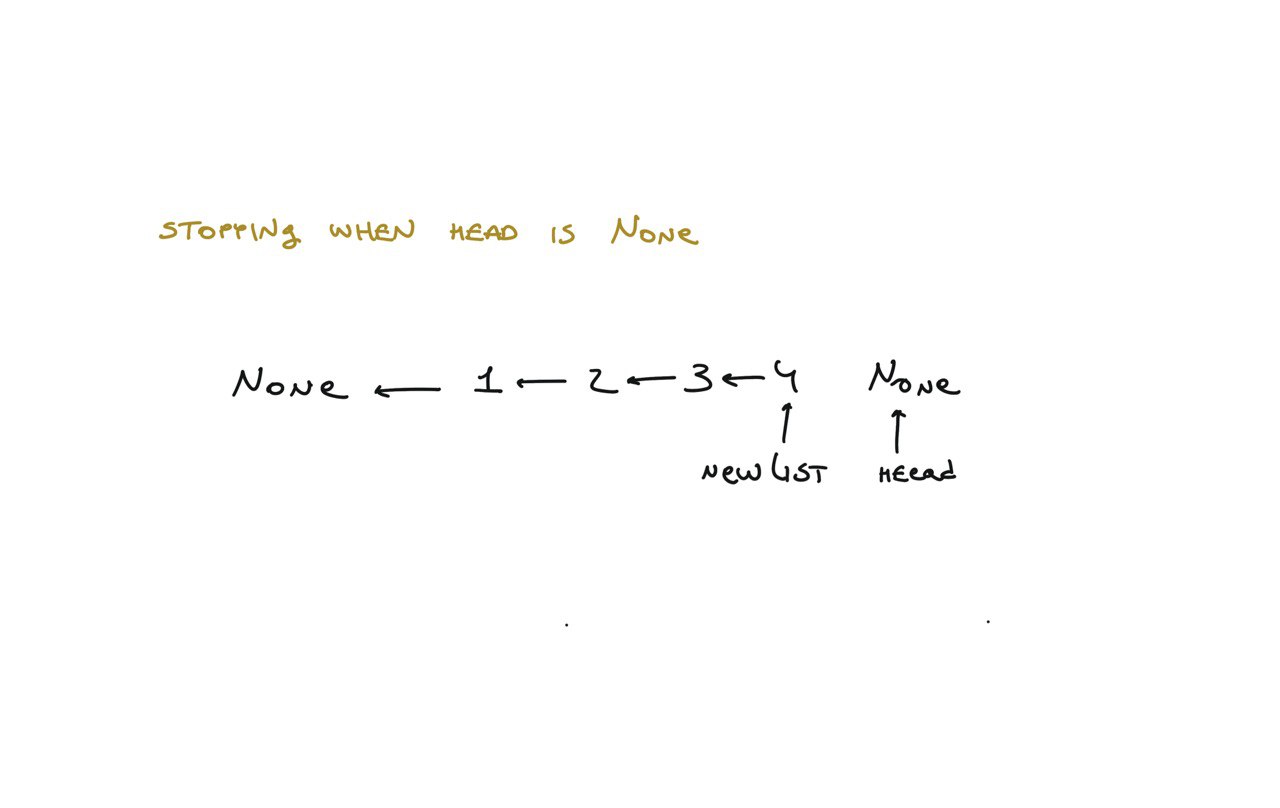 STOPPING WHEN HEAD IS NONE
NONE ← 1 ← 2 ← 3 ← 4 NONE
↑ ↑
NEWLIST HEEAD